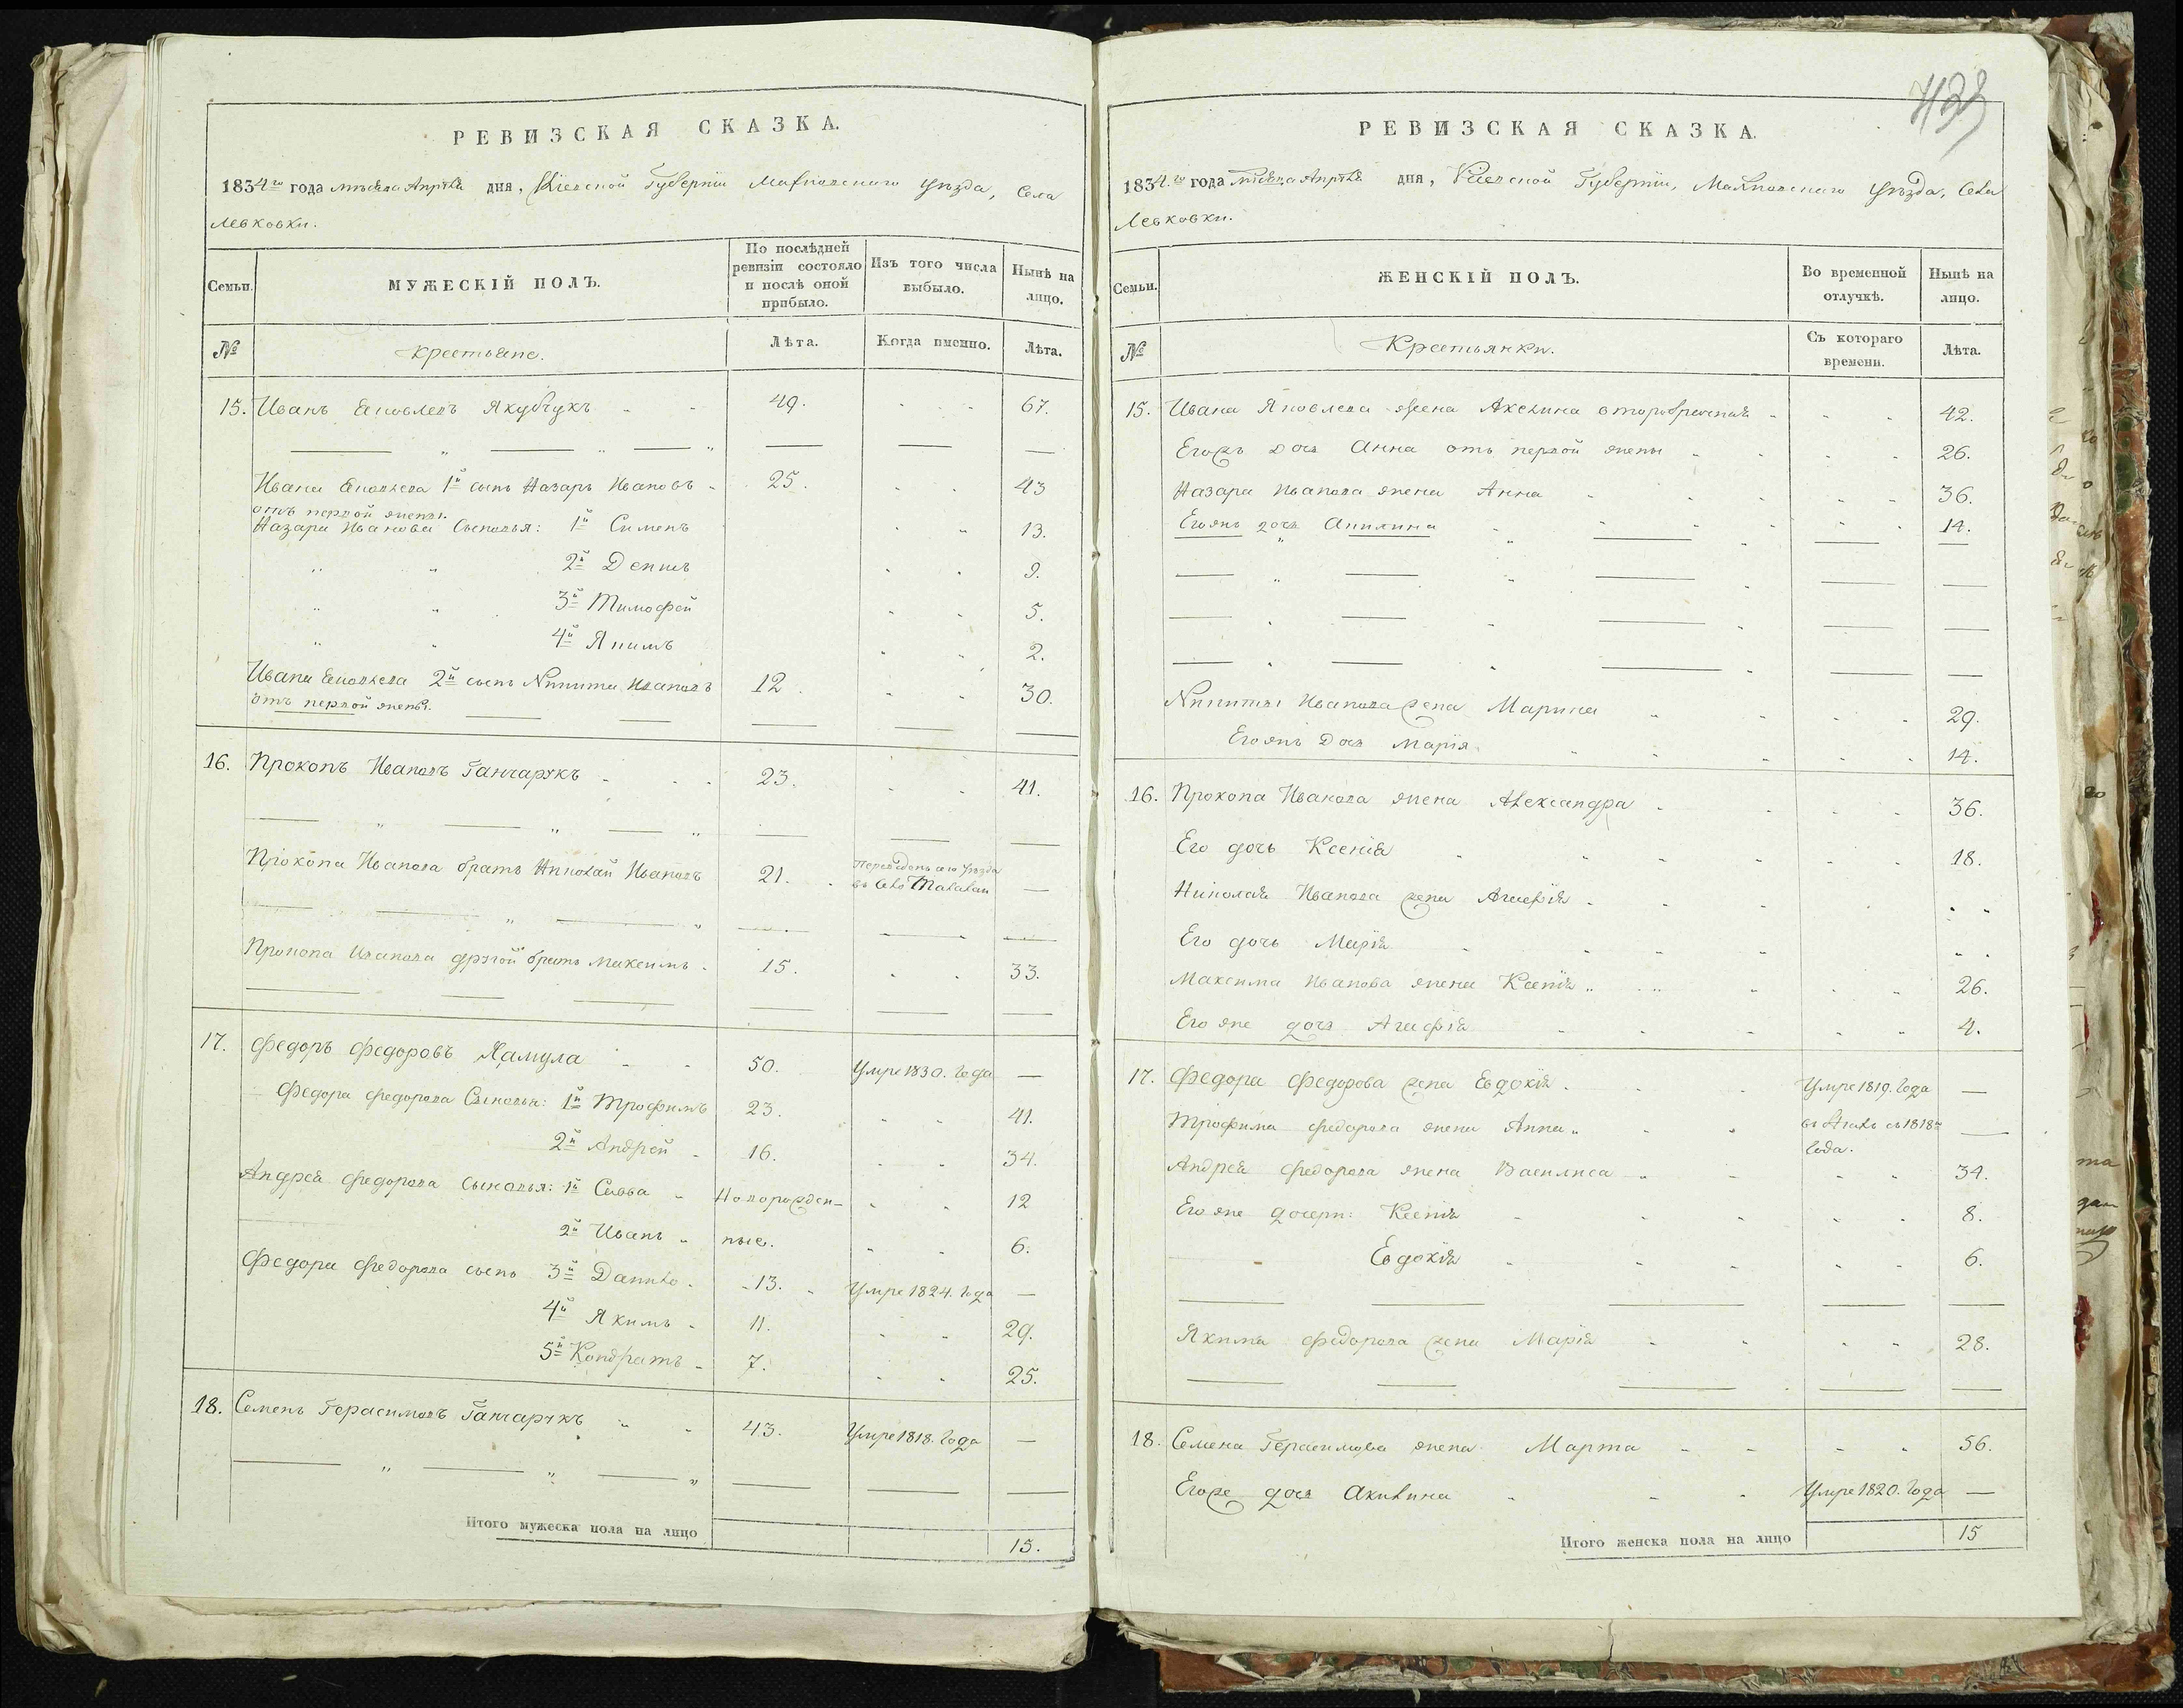 РЕВИЗСКАЯ СКАЗКА.
1834го года мѣсяца Апрѣля дня, Кіевской Губерніи Махновскаго Уѣзда, Села
Левковки.
Семьи. МУЖЕСКІЙ ПОЛЪ. По послѣдней ревизіи состояло и послѣ оной прибыло. Изъ того числа выбыло. Нынѣ на лицо.
№ Крестьяне. Лѣта. Когда именно. Лѣта.
15. Иванъ Яковлевъ Якубчукъ 49. 67.
Ивана Яковлева 1й сынъ Назаръ Ивановъ 25. 43
отъ первой жены.
Назара Иванова Сыновья: 1й Сименъ 13.
2й Денисъ 9.
3й Тимофей 5.
4й Якимъ 2.
Ивана Яковлева 2й сынъ Никита Ивановъ 12. 30.
отъ первой жены.
16. Прокопъ Ивановъ Ганчарукъ 23. 41.
Прокопа Иванова братъ Николай Ивановъ 21. Переведенъ сего Уѣзда —
въ Село
Прокопа Иванова другой братъ Максимъ 15. 33.
17. Федоръ Федоровъ 50. Умре 1830. года —
Федора Федорова Сыновья: 1й Трофимъ 23. 41.
2й Андрей 16. 34.
Андрея Федорова Сыновья: 1й Савва Новорожден- 12
2й Иванъ ные. 6.
Федора Федорова сынъ 3й Данило 13. Умре 1824. года —
4й Якимъ 11. 29.
5й Кондратъ 7. 25.
18. Семенъ Герасимовъ Ганчарукъ 43. Умре 1818. года —
Итого мужеска пола на лицо 15.
РЕВИЗСКАЯ СКАЗКА.
1834.го года мѣсяца Апрѣля дня, Кіевской Губерніи, Махновскаго Уѣзда, Села
Левковки.
Семьи. ЖЕНСКІЙ ПОЛЪ. Во временной отлучкѣ. Нынѣ на лицо.
№ Крестьянки. Съ котораго времени. Лѣта.
15. Ивана Яковлева жена Акелина второбрачная 42.
Егожъ дочь Анна отъ первой жены 26.
Назара Иванова жена Анна 36.
Егожъ дочь 14.
Никиты Иванова жена Марина 29.
Егожъ дочь Марія 14.
16. Прокопа Иванова жена Александра 36.
Его дочь Ксенія 18.
Николая Иванова жена Агафія
Его дочь Марія
Максима Иванова жена Ксенія 26.
Его же дочь Агафія 4.
17. Федора Федорова жена Евдокія Умре 1819. года —
Трофима Федорова жена Анна съ 1818го —
года.
Андрея Федорова жена Василиса 34.
Его же дочери: Ксенія 8.
Евдокія 6.
Якима Федорова жена Марія 28.
18. Семена Герасимова жена Марта 56.
Егоже дочь Акилина Умре 1820. года —
Итого женска пола на лицо 15